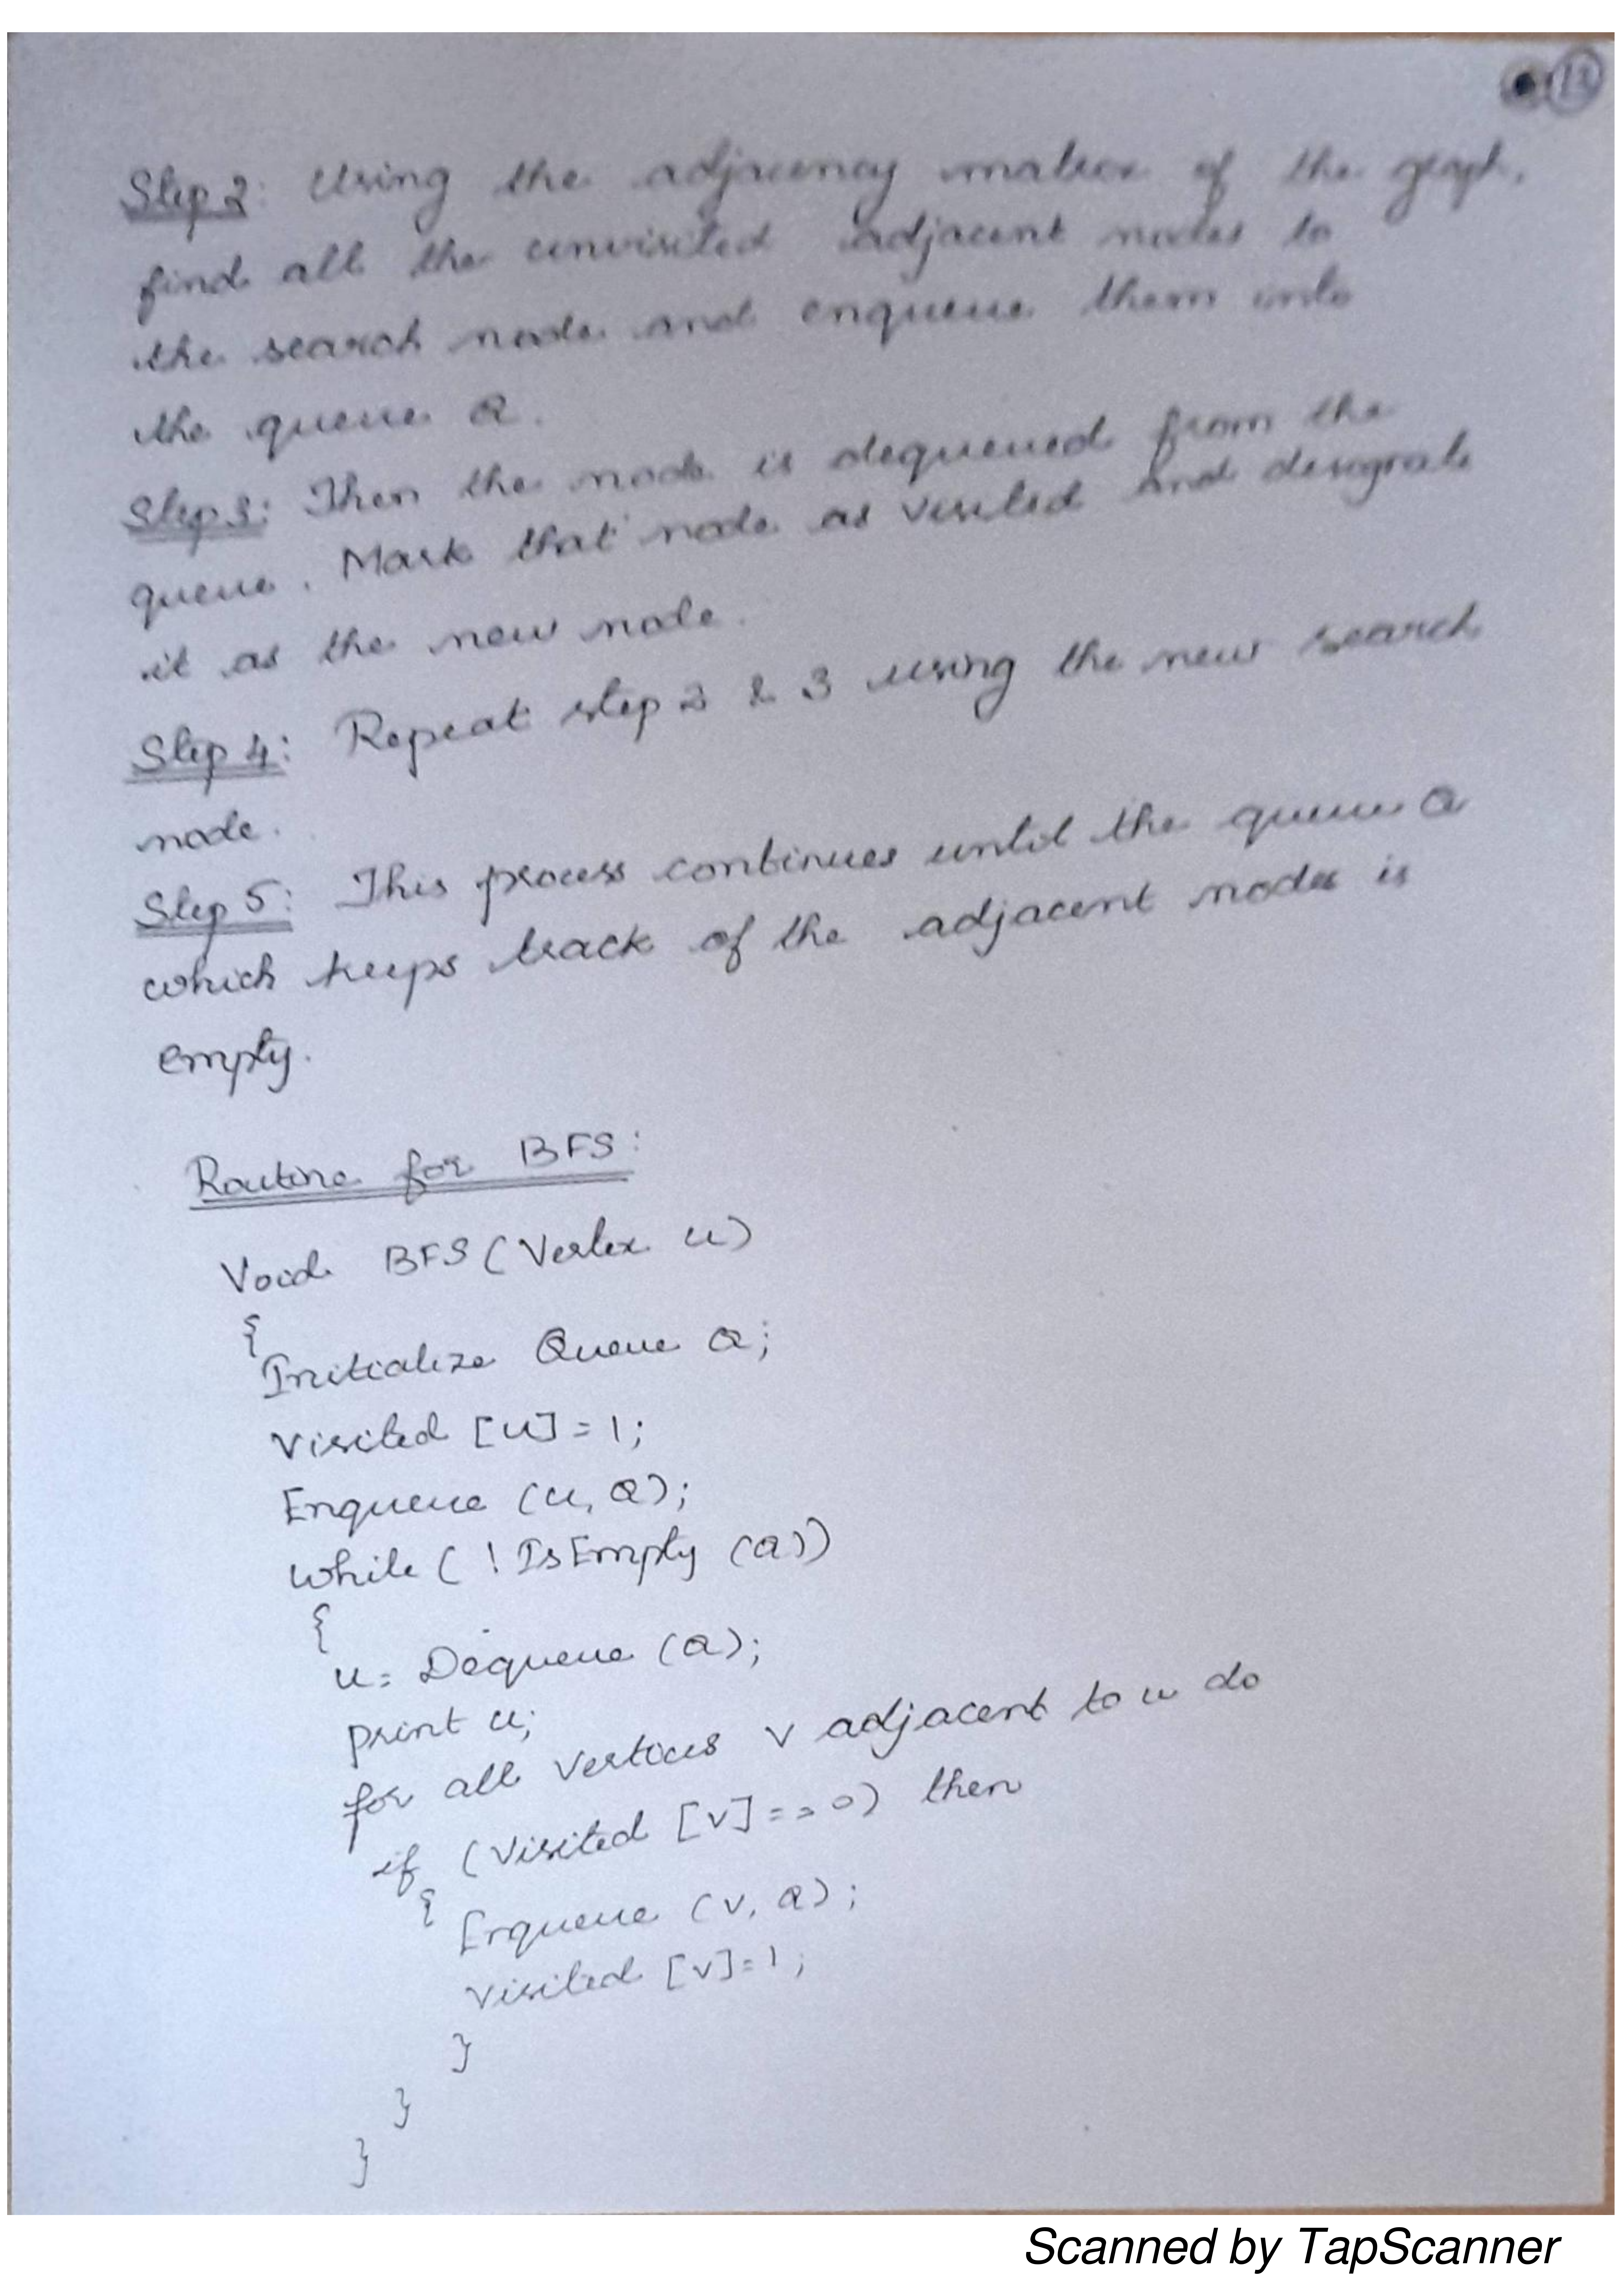 13
Step 2: Using the adjacency matrix of the graph,
find all the unvisited adjacent nodes to
the search node and enqueue them into
the queue Q.
Step 3: Then the node is dequeued from the
queue. Mark that node as visited and designate
it as the new node.
Step 4: Repeat step 2 & 3 using the new search
node.
Step 5: This process continues until the queue Q
which keeps track of the adjacent nodes is
empty.
Routine for BFS:
Void BFS (Vertex u)
{
Initialize Queue Q;
Visited [u] = 1;
Enqueue (u, Q);
while ( ! IsEmpty (Q))
{
u = Dequeue (Q);
print u;
for all vertices v adjacent to u do
if (Visited [v] == 0) then
{
Enqueue (v, Q);
Visited [v] = 1;
}
}
}
Scanned by TapScanner